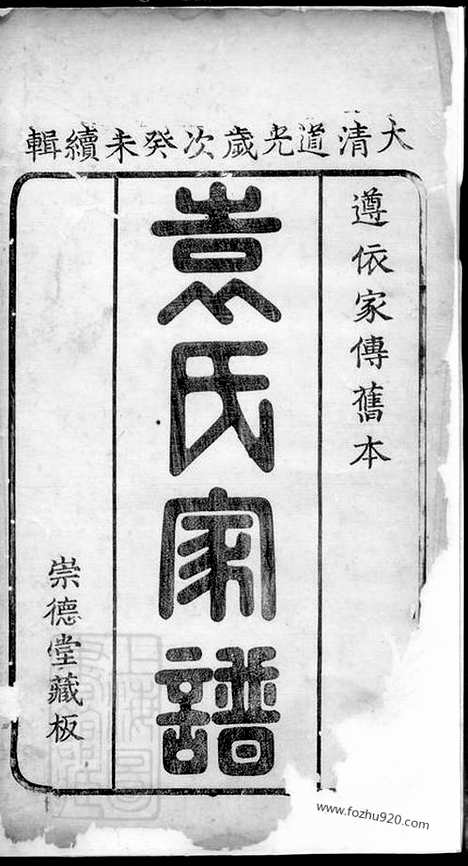 大清道光歲次癸未續輯
遵依家傳舊本
袁氏家譜
崇德堂藏板
www.fozhu920.com